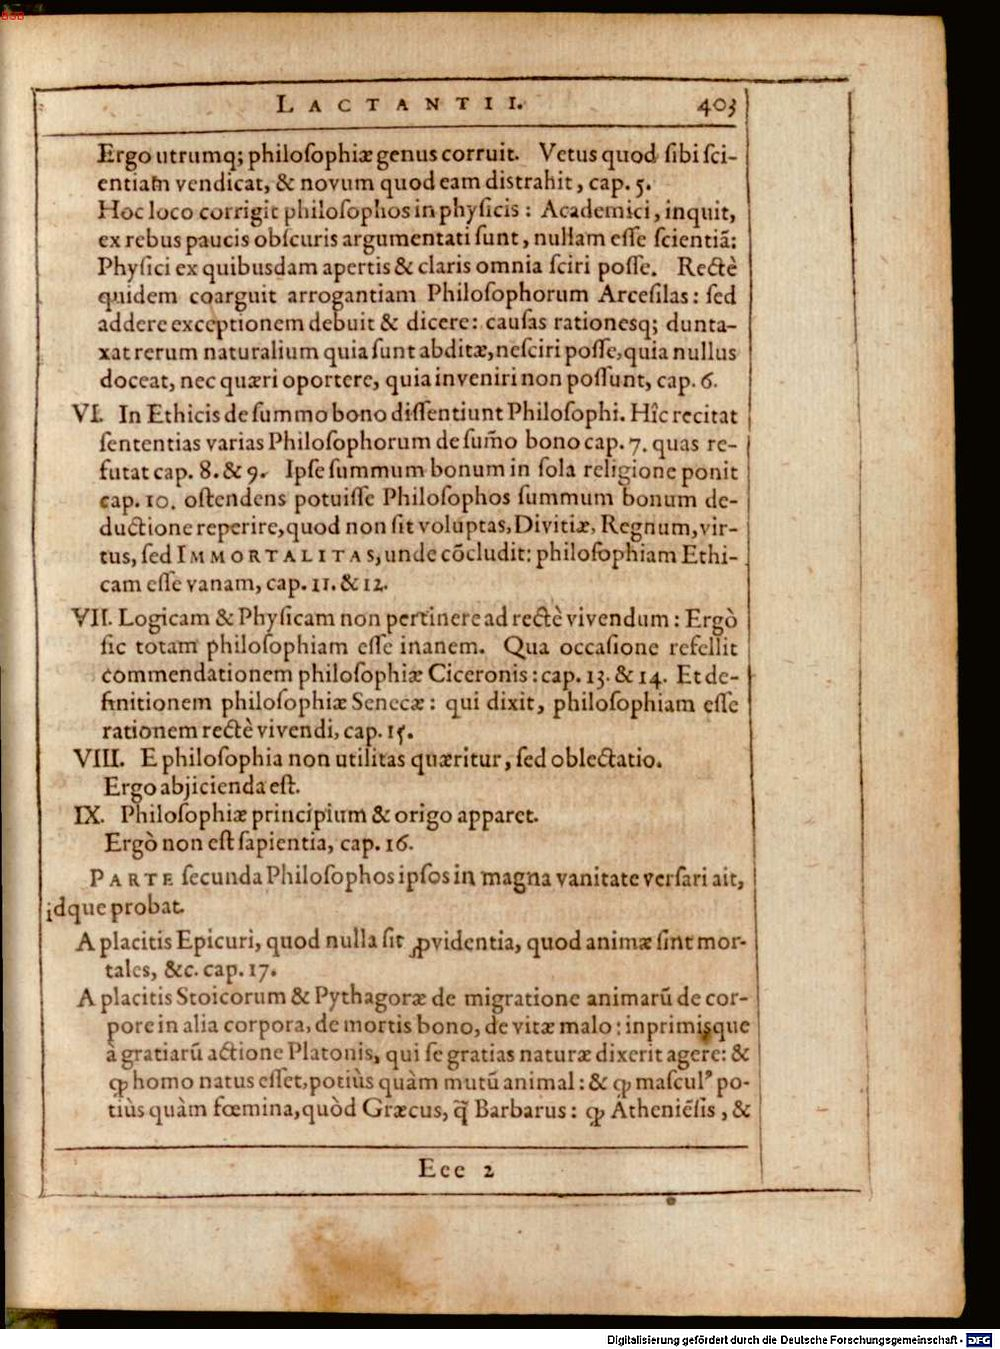 BSB
LACTANTII. 403
Ergo utrumq; philoſophiæ genus corruit. Vetus quod ſibi ſci-
entiam vendicat, & novum quod eam distrahit, cap. 5.
Hoc loco corrigit philoſophos in phyſicis: Academici, inquit,
ex rebus paucis obſcuris argumentati ſunt, nullam eſſe ſcientiã:
Phyſici ex quibusdam apertis & claris omnia ſciri poſſe. Rectè
quidem coarguit arrogantiam Philoſophorum Arceſilas: ſed
addere exceptionem debuit & dicere: cauſas rationesq; dunta-
xat rerum naturalium quia ſunt abditæ, neſciri poſſe, quia nullus
doceat, nec quæri oportere, quia inveniri non poſſunt, cap. 6.
VI. In Ethicis de ſummo bono diſſentiunt Philoſophi. Hîc recitat
ſententias varias Philoſophorum de ſum̃o bono cap. 7. quas re-
futat cap. 8. & 9. Ipſe ſummum bonum in ſola religione ponit
cap. 10. oſtendens potuiſſe Philoſophos ſummum bonum de-
ductione reperire, quod non ſit voluptas, Divitiæ, Regnum, vir-
tus, ſed IMMORTALITAS, unde cõcludit: philoſophiam Ethi-
cam eſſe vanam, cap. 11. & 12.
VII. Logicam & Phyſicam non pertinere ad rectè vivendum: Ergò
ſic totam philoſophiam eſſe inanem. Qua occaſione refellit
commendationem philoſophiæ Ciceronis: cap. 13. & 14. Et de-
finitionem philoſophiæ Senecæ: qui dixit, philoſophiam eſſe
rationem rectè vivendi, cap. 15.
VIII. E philoſophia non utilitas quæritur, ſed oblectatio.
Ergo abjicienda eſt.
IX. Philoſophiæ principium & origo apparet.
Ergò non eſt ſapientia, cap. 16.
PARTE ſecunda Philoſophos ipſos in magna vanitate verſari ait,
idque probat.
A placitis Epicuri, quod nulla ſit ꝓvidentia, quod animæ ſint mor-
tales, &c. cap. 17.
A placitis Stoicorum & Pythagoræ de migratione animarũ de cor-
pore in alia corpora, de mortis bono, de vitæ malo: inprimisque
à gratiarũ actione Platonis, qui ſe gratias naturæ dixerit agere: &
ꝙ homo natus eſſet, potiùs quàm mutũ animal: & ꝙ maſculꝰ po-
tiùs quàm fœmina, quòd Græcus, q̃ Barbarus: ꝙ Atheniẽſis, &
Eee 2
Digitalisierung gefördert durch die Deutsche Forschungsgemeinschaft - DFG